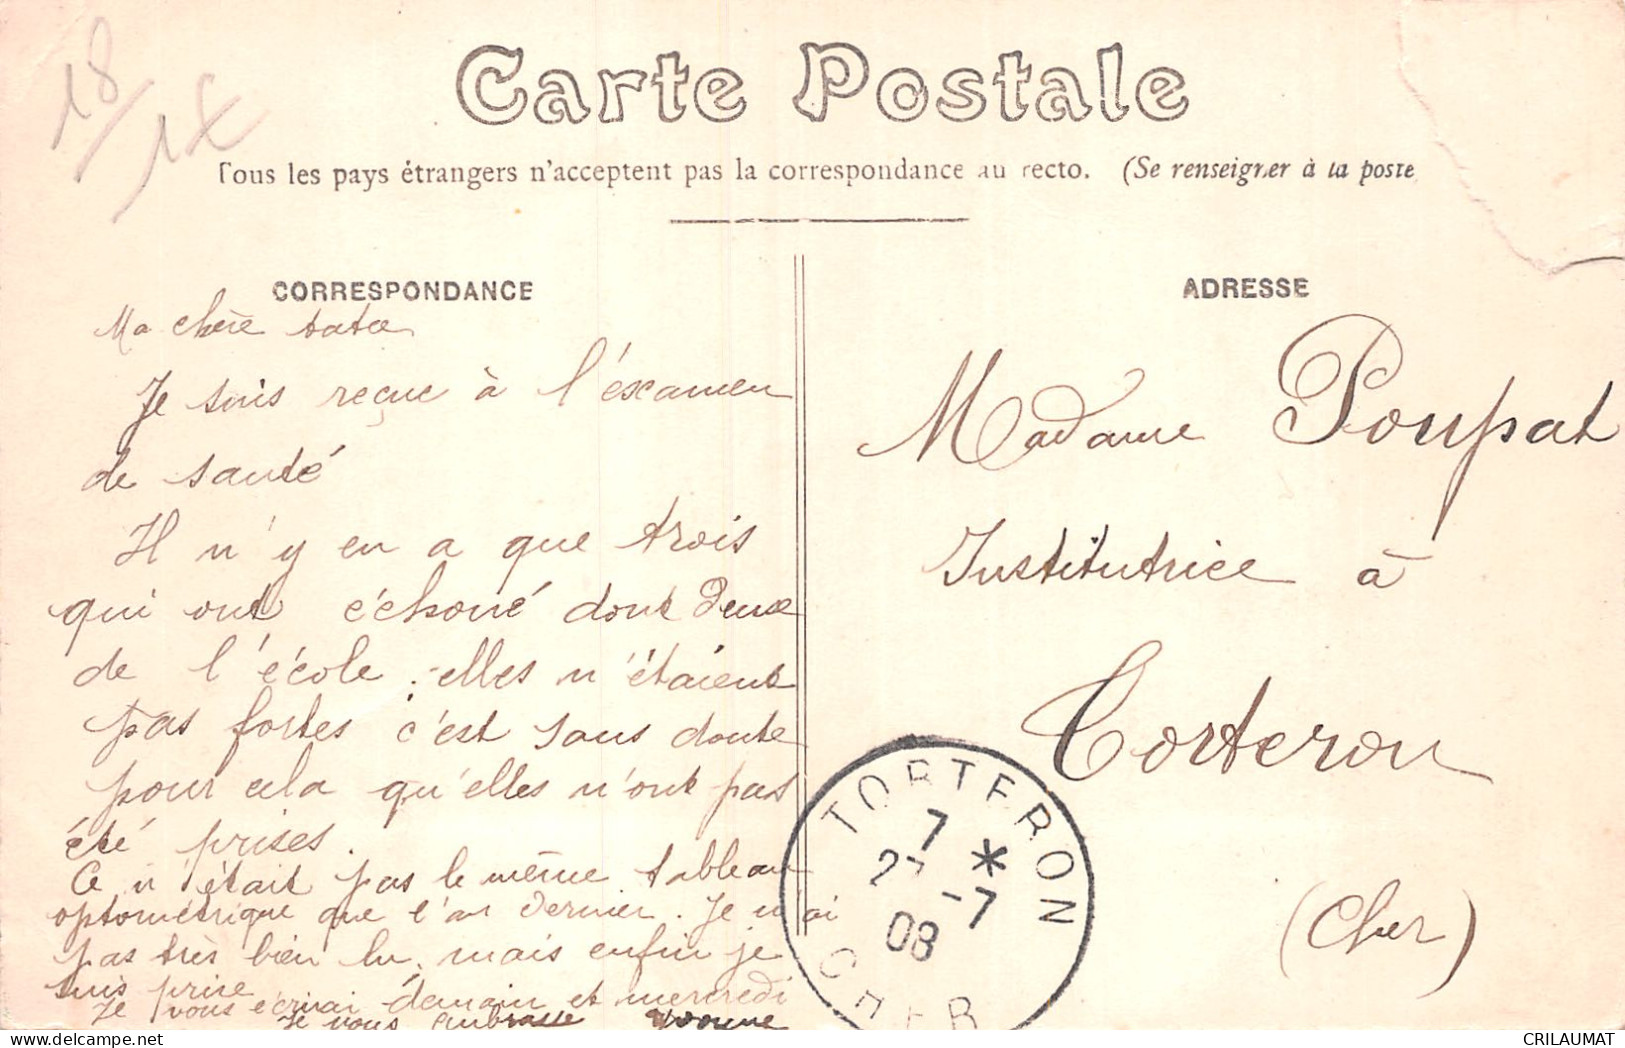 18/1€
Carte Postale
Tous les pays étrangers n'acceptent pas la correspondance au recto. (Se renseigner à la poste
CORRESPONDANCE
Ma chère tata
Je suis reçue à l'éxamen
de santé
Il n'y en a que trois
qui ont échoué dont deux
de l'école ; elles n'étaient
pas fortes c'est sans doute
pour cela qu'elles n'ont pas
été prises.
Ce n'était pas le même tableau
optométrique que l'an dernier. Je n'ai
pas très bien lu, mais enfin je
suis prise
Je vous écrirai demain et mercredi
Je vous embrasse Yvonne
ADRESSE
Madame Poupat
Institutrice à
Torteron
(Cher)
TORTERON
7 *
27 -7
08
CHER
CRILAUMAT